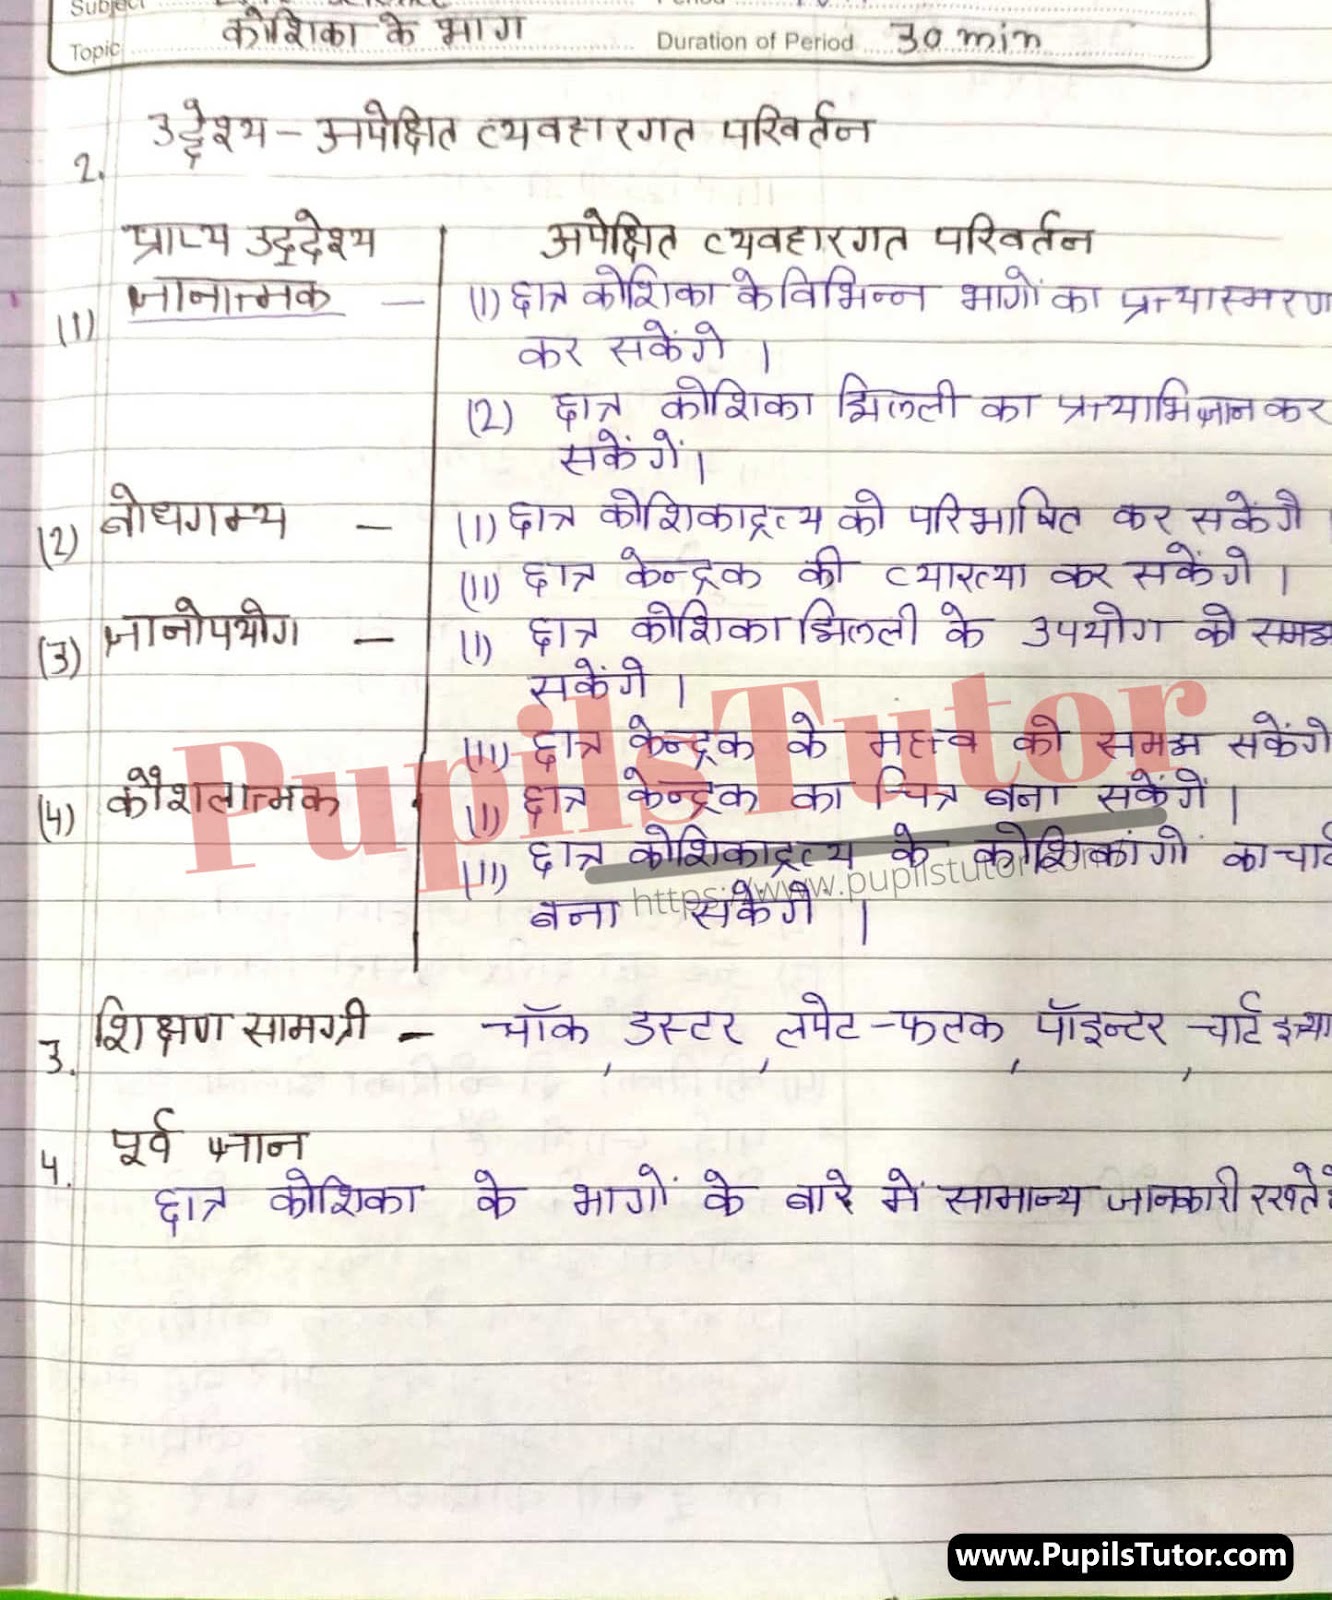 Subject
Topic कोशिका के भाग Duration of Period 30 min
2. उद्देश्य - अपेक्षित व्यवहारगत परिवर्तन
प्राप्य उद्देश्य अपेक्षित व्यवहारगत परिवर्तन
(1) ज्ञानात्मक - (I) छात्र कोशिका के विभिन्न भागों का प्रत्यास्मरण
कर सकेंगे ।
(2) छात्र कोशिका झिल्ली का प्रत्याभिज्ञान कर
सकेंगें ।
(2) बोधगम्य - (I) छात्र कोशिकाद्रव्य को परिभाषित कर सकेंगे ।
(II) छात्र केन्द्रक की व्याख्या कर सकेंगे ।
(3) ज्ञानोपयोग - (I) छात्र कोशिका झिल्ली के उपयोग को समझ
सकेंगे ।
(II) छात्र केन्द्रक के महत्व को समझ सकेंगे
(4) कौशलात्मक (I) छात्र केन्द्रक का चित्र बना सकेंगें ।
(II) छात्र कोशिकाद्रव्य के कोशिकांगों का चार्ट
बना सकेंगे ।
PupilsTutor
https://www.pupilstutor.com
3. शिक्षण सामग्री - चॉक, डस्टर, लपेट-फलक, पॉइन्टर, चार्ट इत्या
4. पूर्व ज्ञान
छात्र कोशिका के भागों के बारे में सामान्य जानकारी रखते है
www.PupilsTutor.com